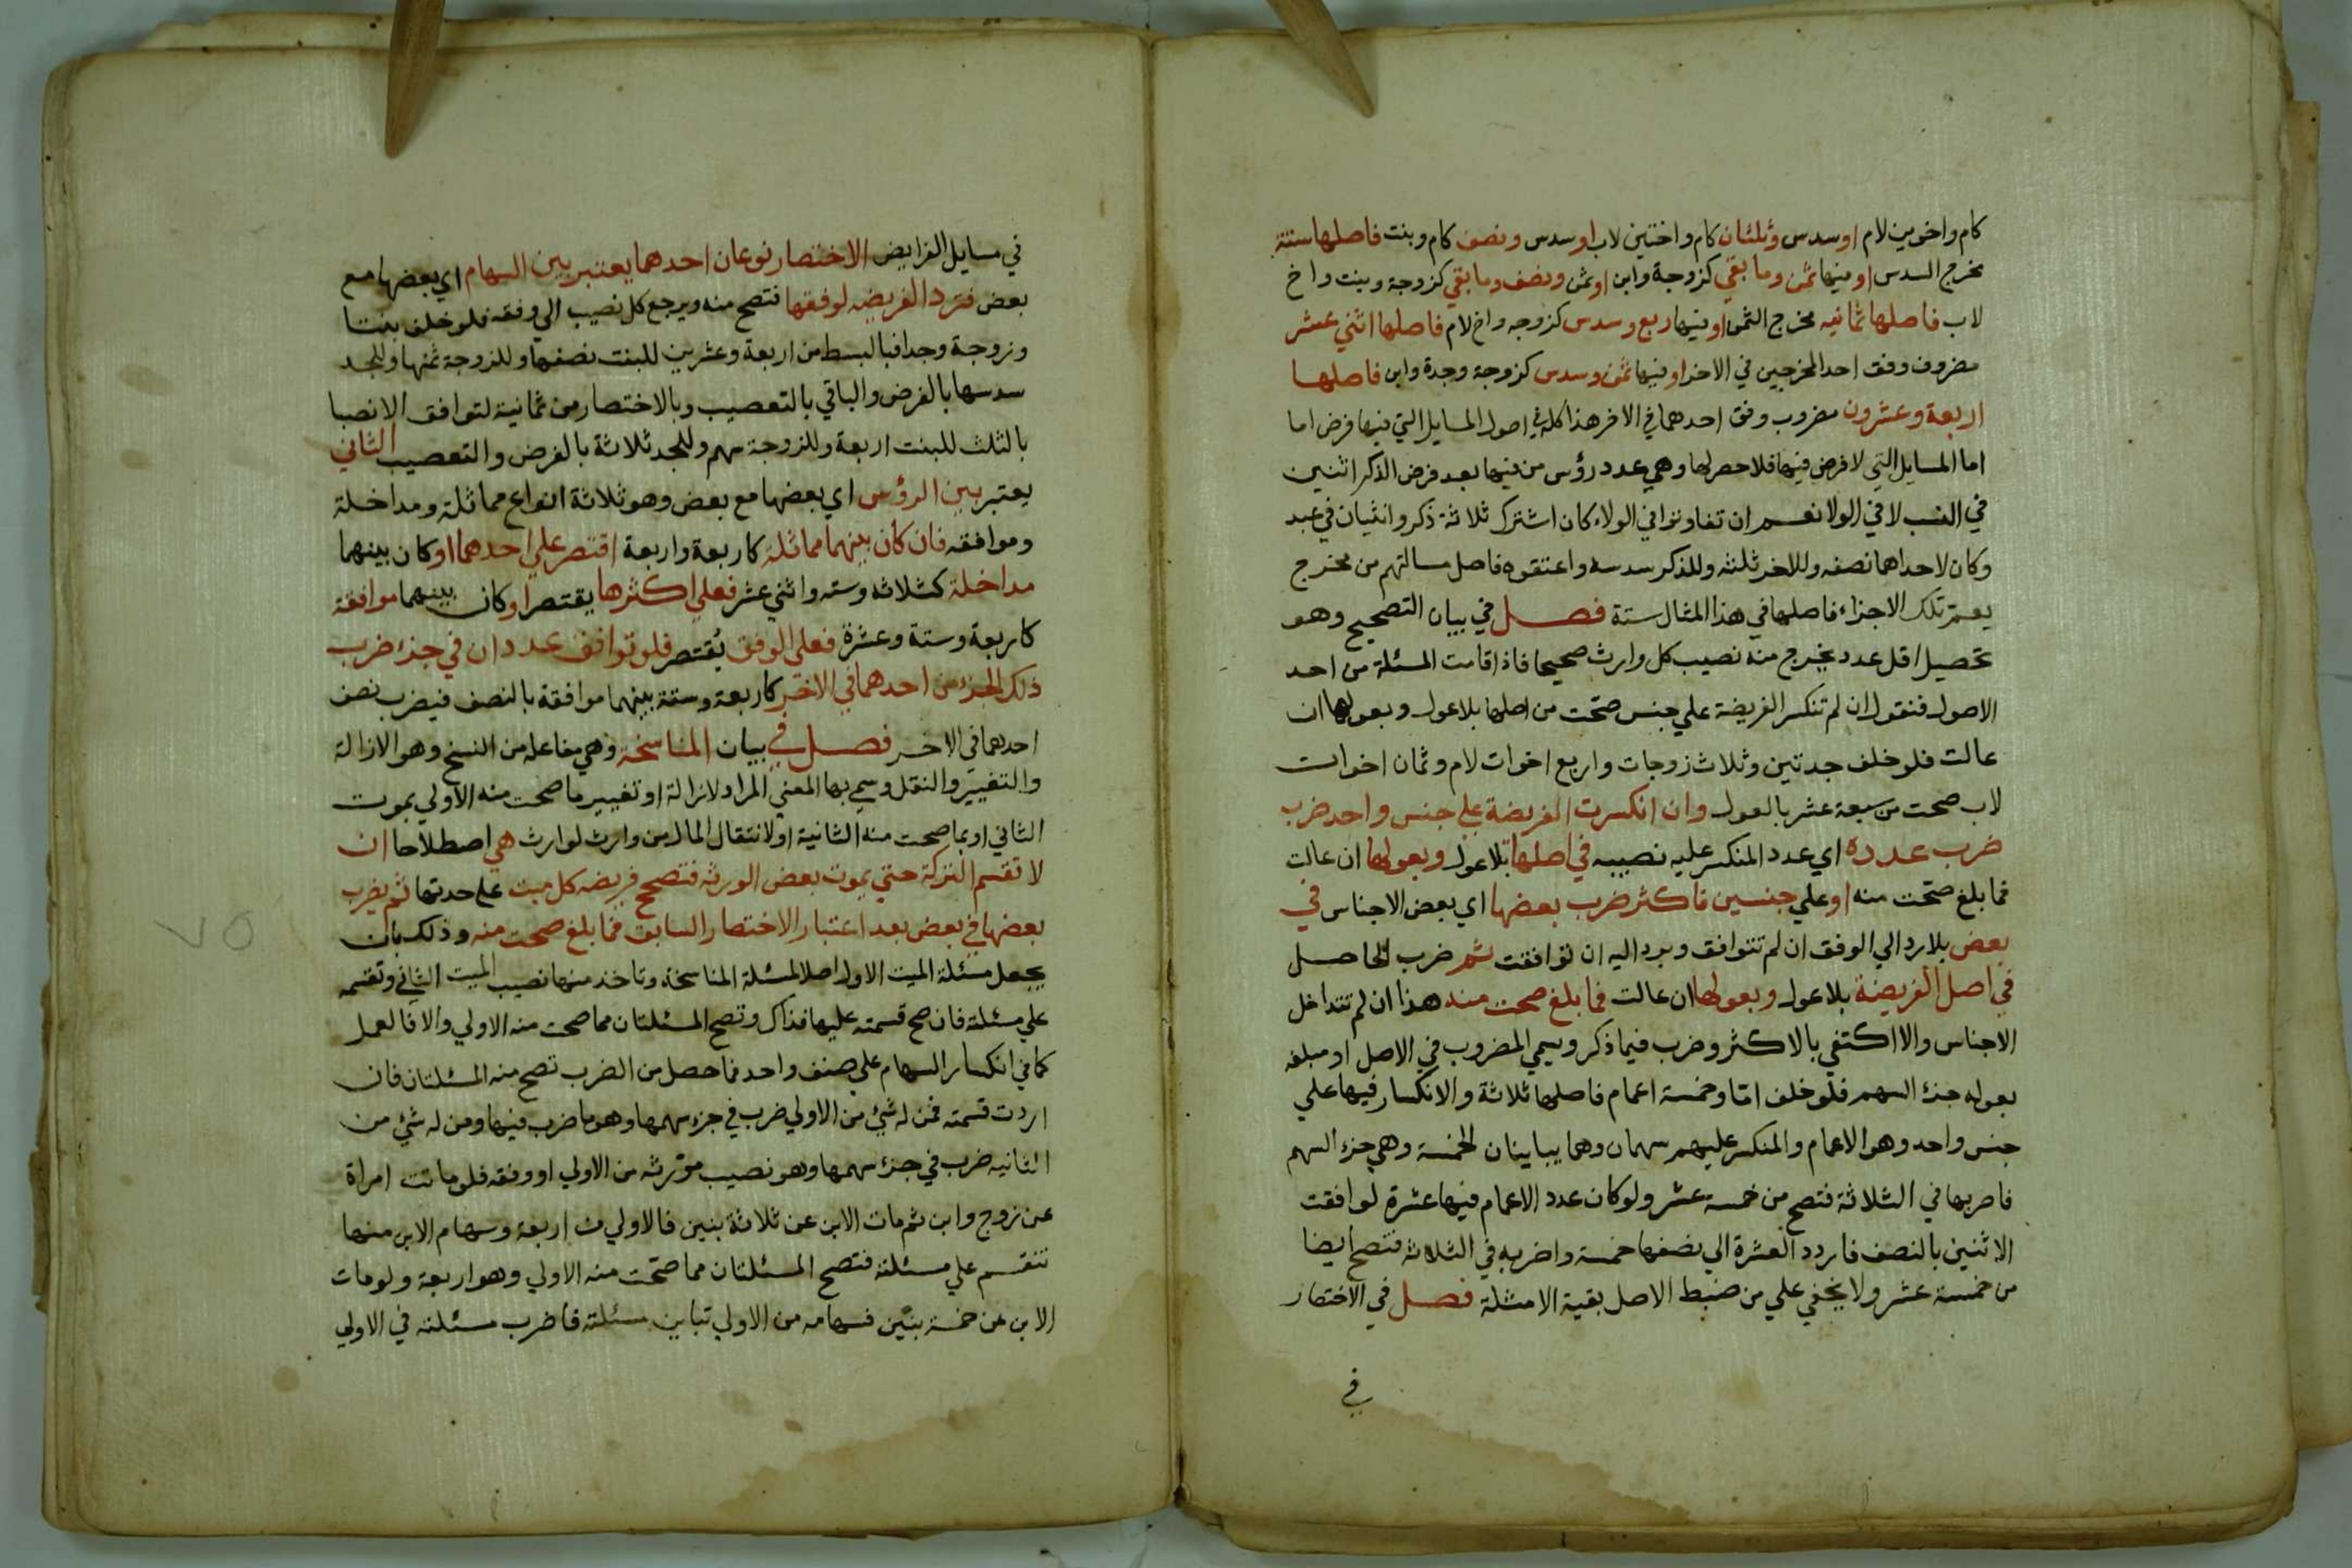 كام واخوين لام اوسدس وثلثان كام واختين لاب اوسدس ونصف كام وبنت فاصلها ستة
مخرج السدس اوفيها ثمن وما بقي كزوجة وابن اوثمن ونصف وما بقي كزوجة وبنت واخ
لاب فاصلها ثمانيه مخرج الثمن اوفيها ربع وسدس كزوجه واخ لام فاصلها اثني عشر
مضروف وفق احد المخرجين في الاخر اوفيها ثمن وسدس كزوجة وجدة وابن فاصلها
اربعة وعشرون مضروب وفق احدهما في الاخر هذا كله في اصول المسايل التي فيها فرض اما
اما المسايل التي لا فرض فيها فلا حصر لها وهي عدد رؤس من فيها بعد فرض الذكر اثنين
في النسب لا في الولا نعم ان تفاوتوا في الولاء كان اشترك ثلاثة ذكر وانثيان في عبد
وكان لاحداهما نصفه وللاخر ثلثه وللذكر سدسه واعتقوه فاصل مسالتهم من مخرج
يعم تلك الاجزاء فاصلها في هذا المثال ستة فصل في بيان التصحيح وهو
تحصيل اقل عدد يخرج منه نصيب كل وارث صحيحا فاذا قامت المسئلة من احد
الاصول فنقول ان لم تنكسر الفريضة علي جنس صحت من اصلها بلا عول وبعولها ان
عالت فلو خلف جدتين وثلاث زوجات واربع اخوات لام وثمان اخوات
لاب صحت من سبعة عشر بالعول وان انكسرت الفريضة علي جنس واحد ضرب
ضرب عدده اي عدد المنكسر عليه نصيبه في اصلها بلا عول وبعولها ان عالت
فما بلغ صحت منه اوعلي جنسين فاكثر ضرب بعضها اي بعض الاجناس في
بعض بلا رد الي الوفق ان لم تتوافق وبرد اليه ان توافقت ثم ضرب الحاصل
في اصل الفريضة بلا عول وبعولها ان عالت فما بلغ صحت منه هذا ان لم تتداخل
الاجناس والا اكتفي بالاكثر وضرب فيما ذكر ويسمي المضروب في الاصل او مبلغه
بعوله جزء السهم فلو خلف اما وخمسة اعمام فاصلها ثلاثة والانكسار فيها علي
جنس واحد وهو الاعمام والمنكسر عليهم سهمان وهما يباينان الخمسة وهي جزء السهم
فاضربها في الثلاثة فتصح من خمسة عشر ولو كان عدد الاعمام فيها عشرة لوافقت
الاثنين بالنصف فاردد العشرة الي نصفها خمسة واضربه في الثلاثة فتصح ايضا
من خمسة عشر ولا يخفي علي من ضبط الاصل بقية الامثلة فصل في الاختصار
في
في مسايل الفرايض الاختصار نوعان احدهما يعتبر بين السهام اي بعضها مع
بعض فترد الفريضه لوفقها فتصح منه ويرجع كل نصيب الي وفقه فلو خلف بنتا
وزوجة وجدا فبالبسط من اربعة وعشرين للبنت نصفها وللزوجة ثمنها وللجد
سدسها بالفرض والباقي بالتعصيب وبالاختصار من ثمانية لتوافق الانصبا
بالثلث للبنت اربعة وللزوجة سهم وللجد ثلاثة بالفرض والتعصيب الثاني
يعتبر بين الرؤس اي بعضها مع بعض وهو ثلاثة انواع مماثلة ومداخلة
وموافقه فان كان بينهما مماثلة كاربعة واربعة اقتصر علي احدهما اوكان بينهما
مداخلة كثلاثه وسته واثني عشر فعلي اكثرها يقتصر اوكان بينهما موافقة
كاربعة وستة وعشرة فعلي الوفق يقتصر فلو توافق عددان في جزء ضرب
ذلك الجزء من احدهما في الاخر كاربعة وستة بينهما موافقة بالنصف فيضرب نصف
احدهما في الاخر فصل في بيان المناسخة وهي مفاعله من النسخ وهو الازالة
والتغيير والنقل وسمي بها المعني المراد لازالة او تغيير ما صحت منه الاولي بموت
الثاني او بما صحت منه الثانية او لانتقال المال من وارث لوارث هي اصطلاحا ان
لا تقسم التركة حتي يموت بعض الورثه فتصحح فريضه كل ميت علي حدتها ثم يضرب
بعضها في بعض بعد اعتبار الاختصار السابق فما بلغ صحت منه وذلك بان
يجعل مسئلة الميت الاول اصلا لمسئلة المناسخة وتاخذ منها نصيب الميت الثاني وتقسمه
علي مسئلته فان صح قسمته عليها فذاك وتصح المسئلتان مما صحت منه الاولي والا فالعمل
كما في انكسار السهام علي صنف واحد فما حصل من الضرب تصح منه المسئلتان فان
اردت قسمته فمن له شيء من الاولي ضرب في جزء سهمها وهو ما ضرب فيها ومن له شيء من
الثانيه ضرب في جزء سهمها وهو نصيب مورثه من الاولي او وفقه فلو ماتت امراة
عن زوج وابن ثم مات الابن عن ثلاثة بنين فالاولي من اربعة وسهام الابن منها
تنقسم علي مسئلته فتصح المسئلتان مما صحت منه الاولي وهو اربعة ولو مات
الابن عن خمسة بنين فسهامه من الاولي تباين مسئلته فاضرب مسئلته في الاولي
٧٥